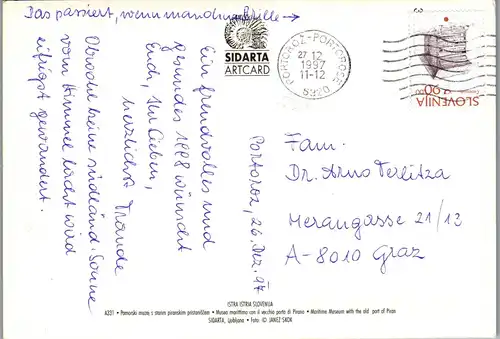 Das passiert, wenn man ohne Brille →
SIDARTA
ARTCARD
PORTOROŽ-PORTOROSE
27.12
1997
11-12
6320
SLOVENIJA
90
Ein freudvolles und
Gesundes 1998 wünscht
Euch, Ihr Lieben,
herzlichst Traude
Obwohl keine südländ. Sonne
vom Himmel lacht wird
eifrigst gewandert.
Portoroz, 26. Dez. 97
Fam.
Dr. Arno Terlitza
Merangasse 21/13
A-8010 Graz
ISTRA ISTRIA SLOVENIJA
A321 • Pomorski muzej s starim piranskim pristaniščem • Museo marittimo con il vecchio porto di Pirano • Maritime Museum with the old port of Piran
SIDARTA, Ljubljana • Foto: © JANEZ SKOK